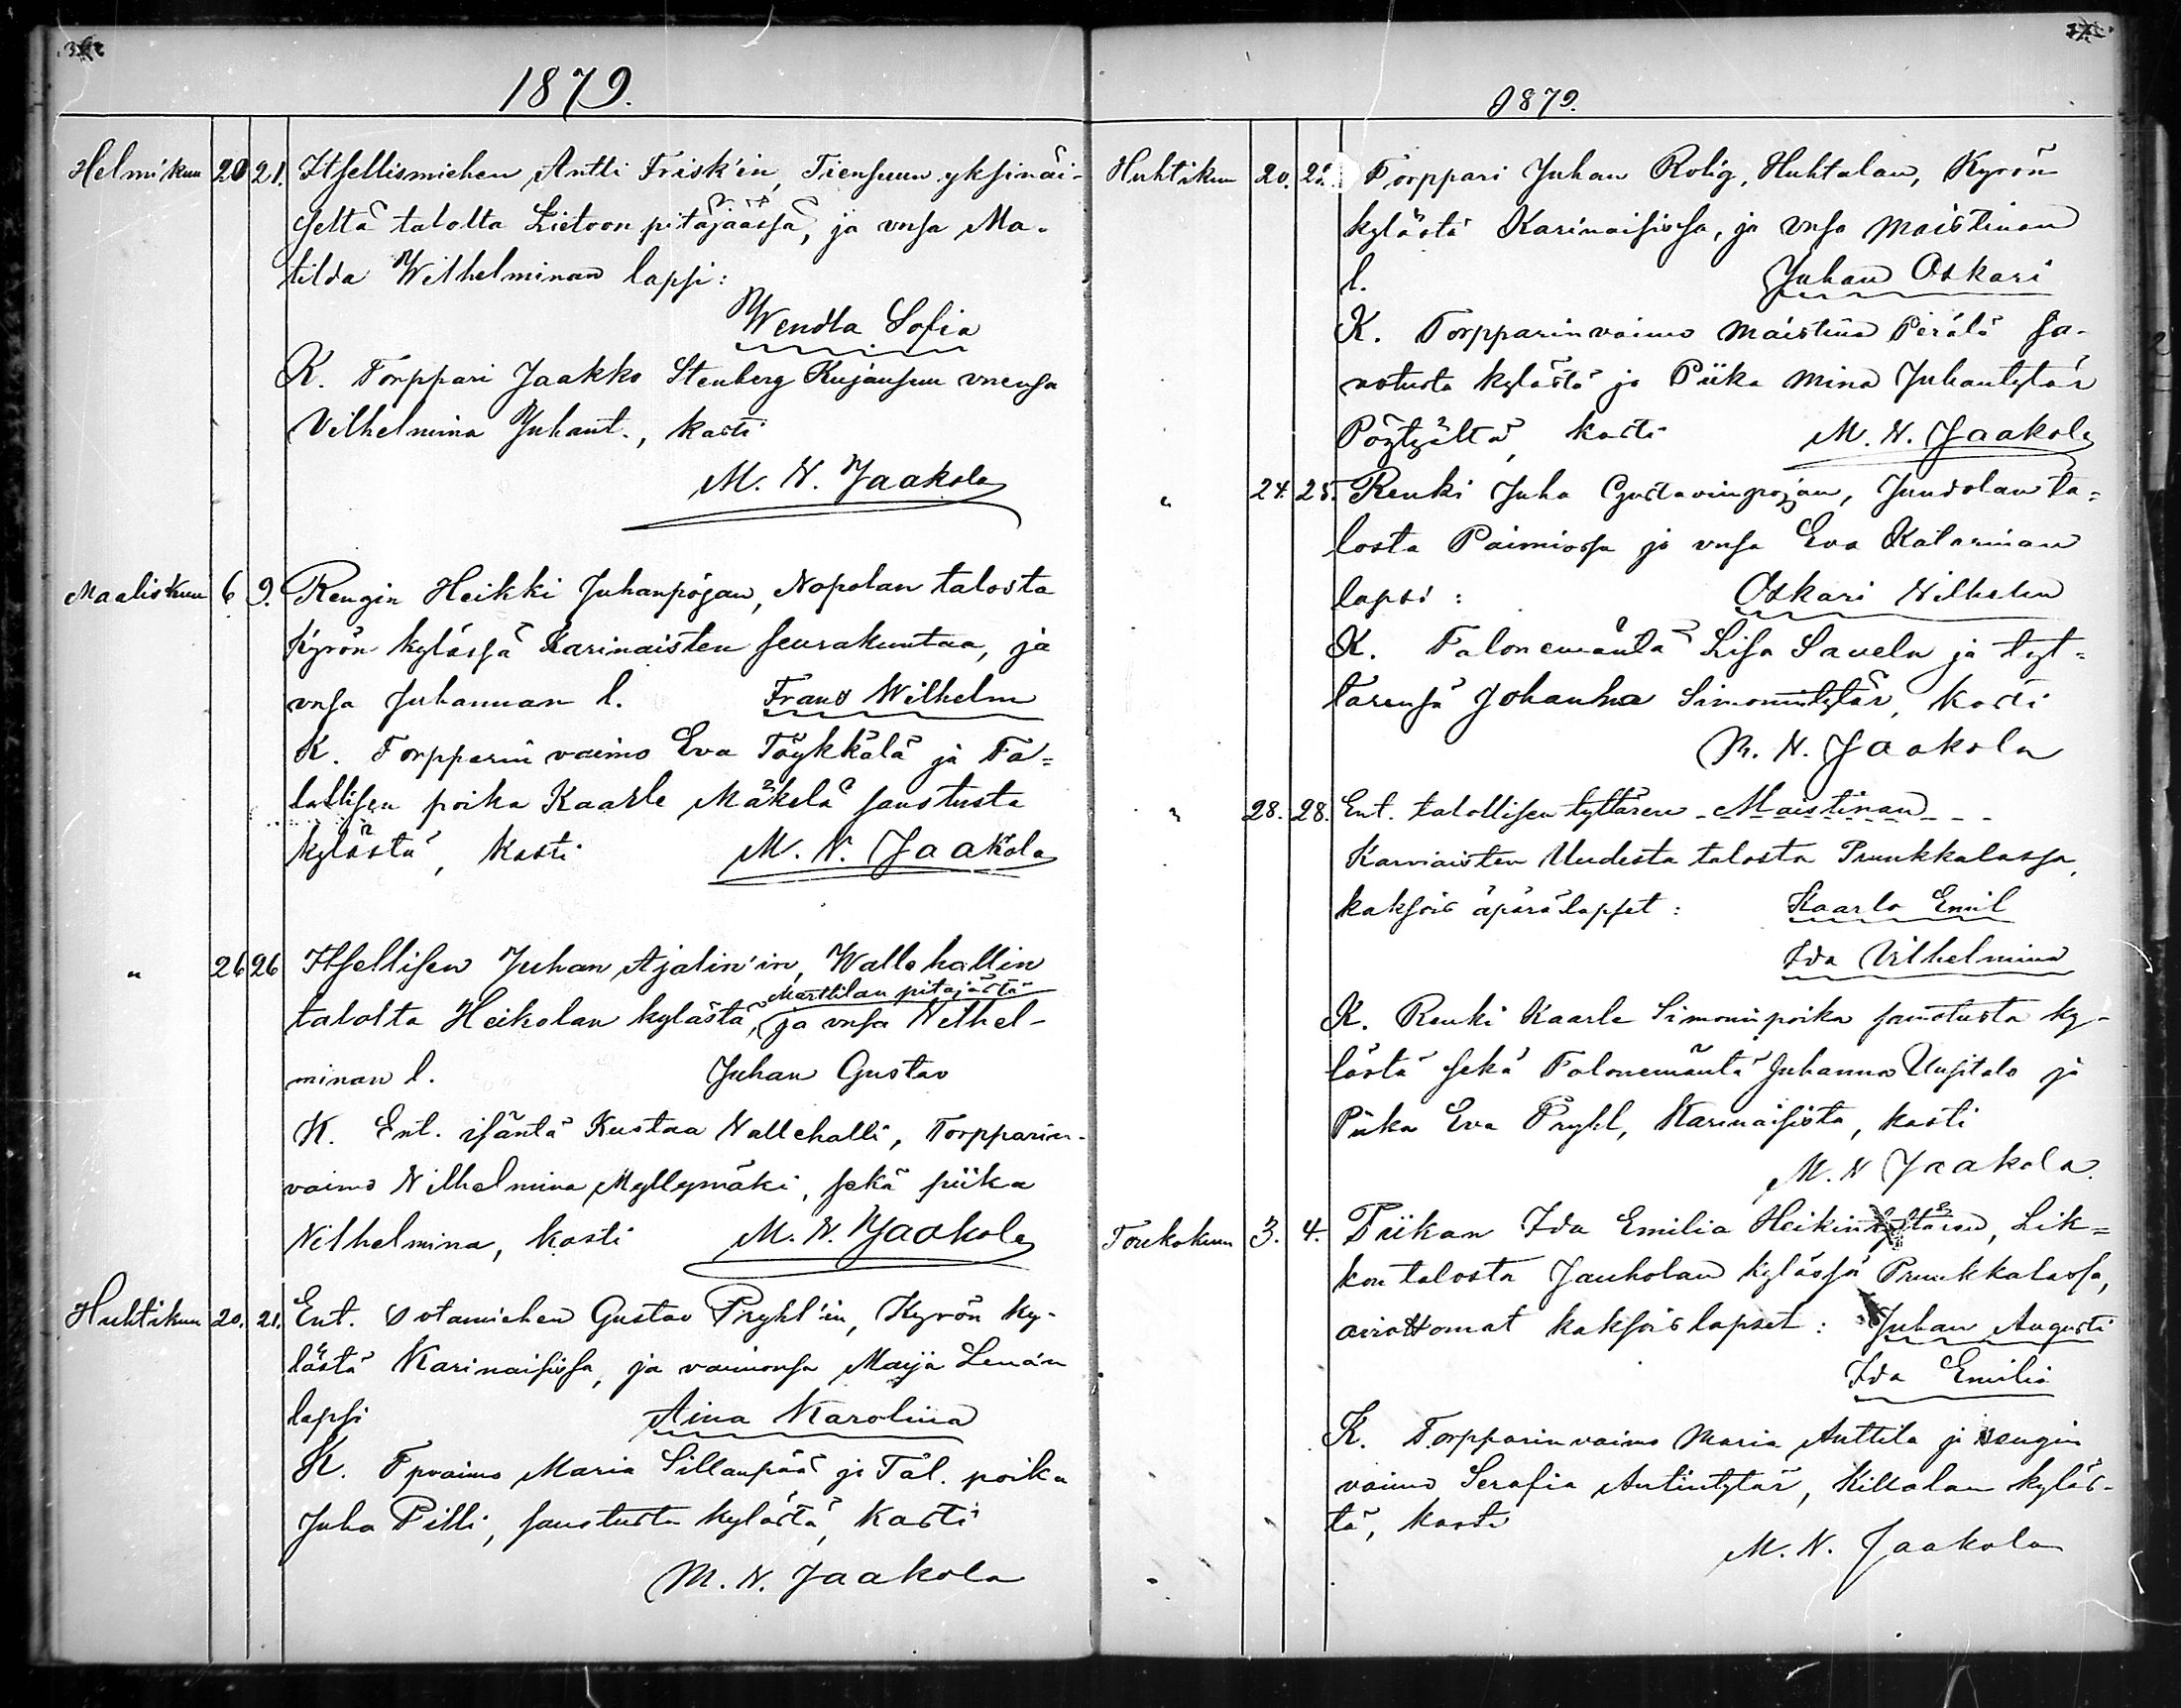 1879.
Helmikuu 20 21. Itsellismiehen Antti Frisk'in, Tiensuun yksinäi-
seltä talolta Lietoon pitäjäässä, ja vnsa Ma-
tilda Wilhelminan lapsi:
Wendla Sofia
K. Torppari Jaakko Stenberg Kujansuu vnensa
Vilhelmina Juhant., kasti
M. W. Jaakola
Maaliskuu 6 9. Rengin Heikki Juhanpojan, Nopolan talosta
Kyrön kylässä Karinaisten seurakuntaa, ja
vnsa Juhannan l. Frans Wilhelm
K. Torpparin vaimo Eva Töykkälä ja Ta=
lollisen poika Kaarle Mäkelä saustusta
kylästä, kasti M. W. Jaakola
" 26 26 Itsellisen Juhan Ajalin'in, Wallehallin
Marttilan pitäjästä
talolta Heikolan kylästä, ja vnsa Wilhel-
minan l. Juhan Gustav
K. Ent. isäntä Kustaa Wallehalli, Torpparin-
vaimo Wilhelmina Myllymäki, sekä piika
Wilhelmina, kasti M. W. Jaakola
Huhtikuu 20. 21. Ent. sotamiehen Gustav Prykl'in, Kyrön ky-
lästä Karinaisissa, ja vaimonsa Maija Lenan
lapsi Aina Karolina
K. Tpvaimo Maria Sillanpää ja Tal. poika
Juha Pilli, saustusta kylästä, kasti
M. W. Jaakola
1879.
Huhtikuu 20. Torppari Juhan Rolig, Huhtalan, Kyrön
kylästä Karinaisissa, ja vnsa Maistinan
l. Juhan Oskari
K. Torpparinvaimo Maistina Perälä sa-
vstusta kylästä ja Piika Mina Juhantytär
Pöytyältä, kasti M. W. Jaakola
" 24. 25. Renki Juha Gustavinpojan, Juntolan ta=
losta Paimiossa ja vnsa Eva Katarinan
lapsi: Oskari Wilhelm
K. Talonemäntä Lisa Savela ja tyt=
tärensä Johanna Simonintytär, kasti
M. W. Jaakola
" 28. 28. Ent. talollisen tyttären Maistinan
Karviaisten Uudesta talosta Prunkkalassa,
kaksois äpärälapset: Kaarlo Emil
Ida Vilhelmina
K. Renki Kaarle Simoninpoika saustusta ky-
lästä sekä Talonemäntä Juhanna Uusitalo ja
Piika Eva Prykl, Karinaisista, kasti
M. W. Jaakola.
Toukokuu 3. 4. Piikan Ida Emilia Heikintyttären, Lik=
kon talosta Jauholan kylässä Prunkkalassa,
aviottomat kaksoislapset: Juhan Augusti
Ida Emilia
K. Torpparinvaimo Maria Anttila ja rengin
vaimo Serafia Antintytär, Killalan kyläs-
tä, kasti
M. W. Jaakola